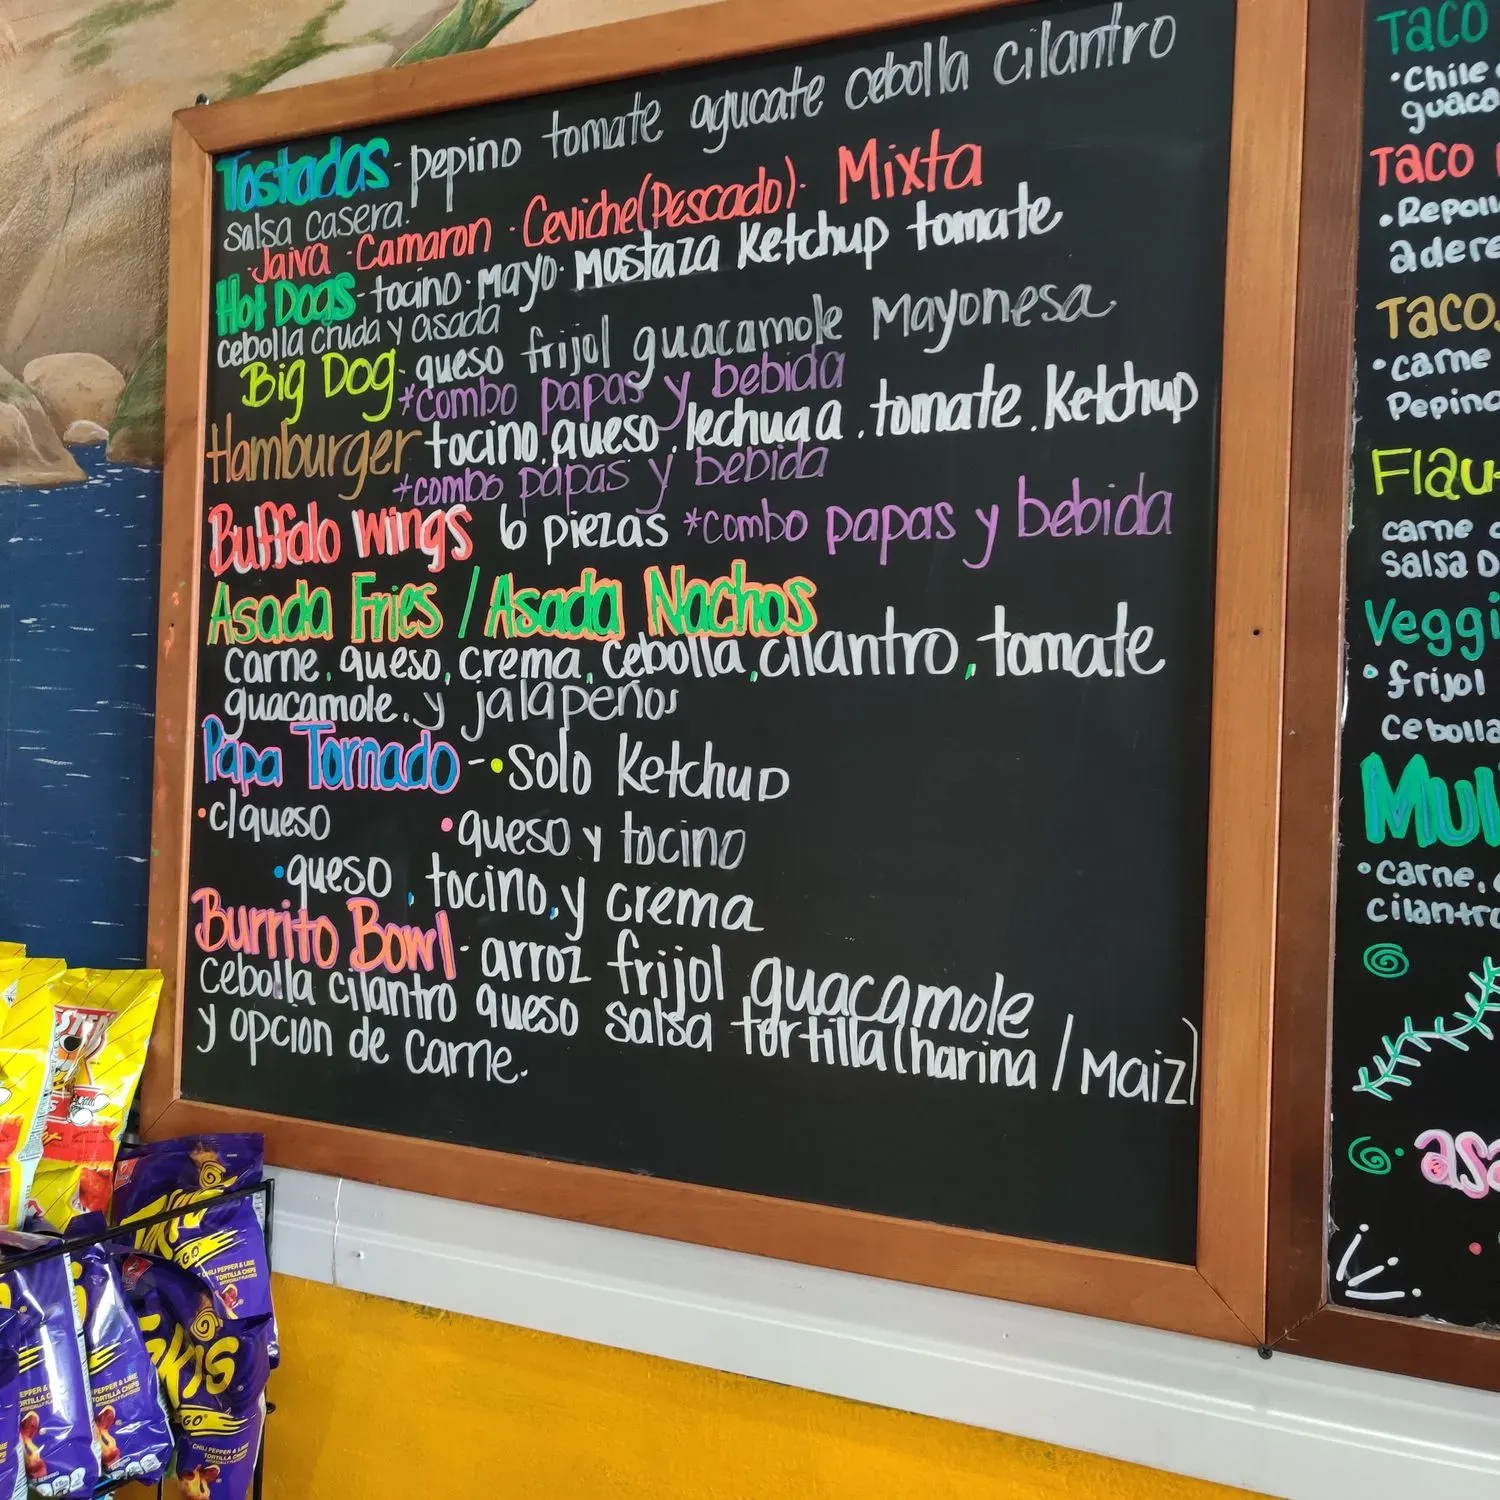 Tostadas - pepino tomate agucate cebolla cilantro
salsa casera.
· Jaiva · Camaron · Ceviche (Pescado) · Mixta
Hot Dogs - tocino · Mayo · Mostaza Ketchup tomate
cebolla cruda y asada
Big Dog - queso frijol guacamole Mayonesa
*combo papas y bebida
Hamburger tocino, queso, lechuga, tomate, Ketchup
*combo papas y bebida
Buffalo Wings 6 piezas *combo papas y bebida
Asada Fries / Asada Nachos
carne, queso, crema, cebolla, cilantro, tomate
guacamole, y jalapeños
Papa Tornado - • solo Ketchup
• c/queso • queso y tocino
• queso, tocino, y crema
Burrito Bowl - arroz frijol guacamole
cebolla cilantro queso salsa tortilla (harina / Maiz)
y opcion de Carne.
Taco
• Chile
Taco
•
Taco
• carne
Flau
carne
salsa
• frijol
Cebolla
• carne,
cilantro
CHILI PEPPER & LIME
TORTILLA CHIPS
ARTIFICIALLY FLAVORED
CHILI PEPPER & LIME
TORTILLA CHIPS